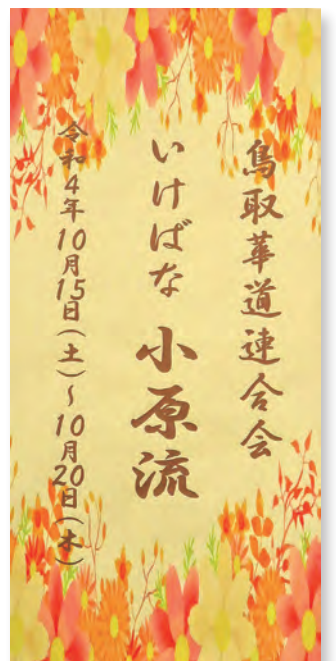 鳥取華道連合会
いけばな 小原流
令和4年10月15日(土)~10月20日(木)